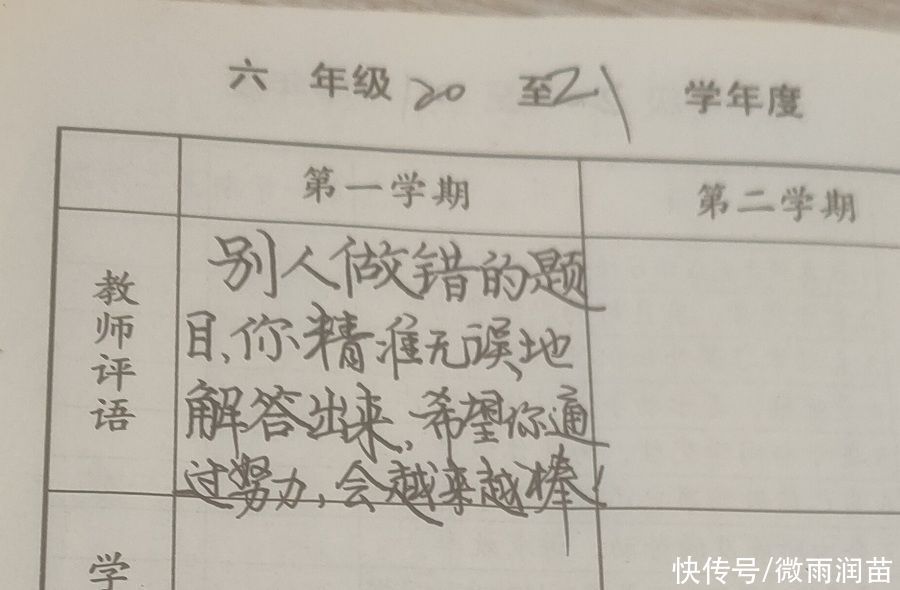 六 年级 20 至21 学年度
第一学期 第二学期
教师评语
别人做错的题
目,你精准无误地
解答出来,希望你通
过努力,会越来越棒!
学
快传号/微雨润苗